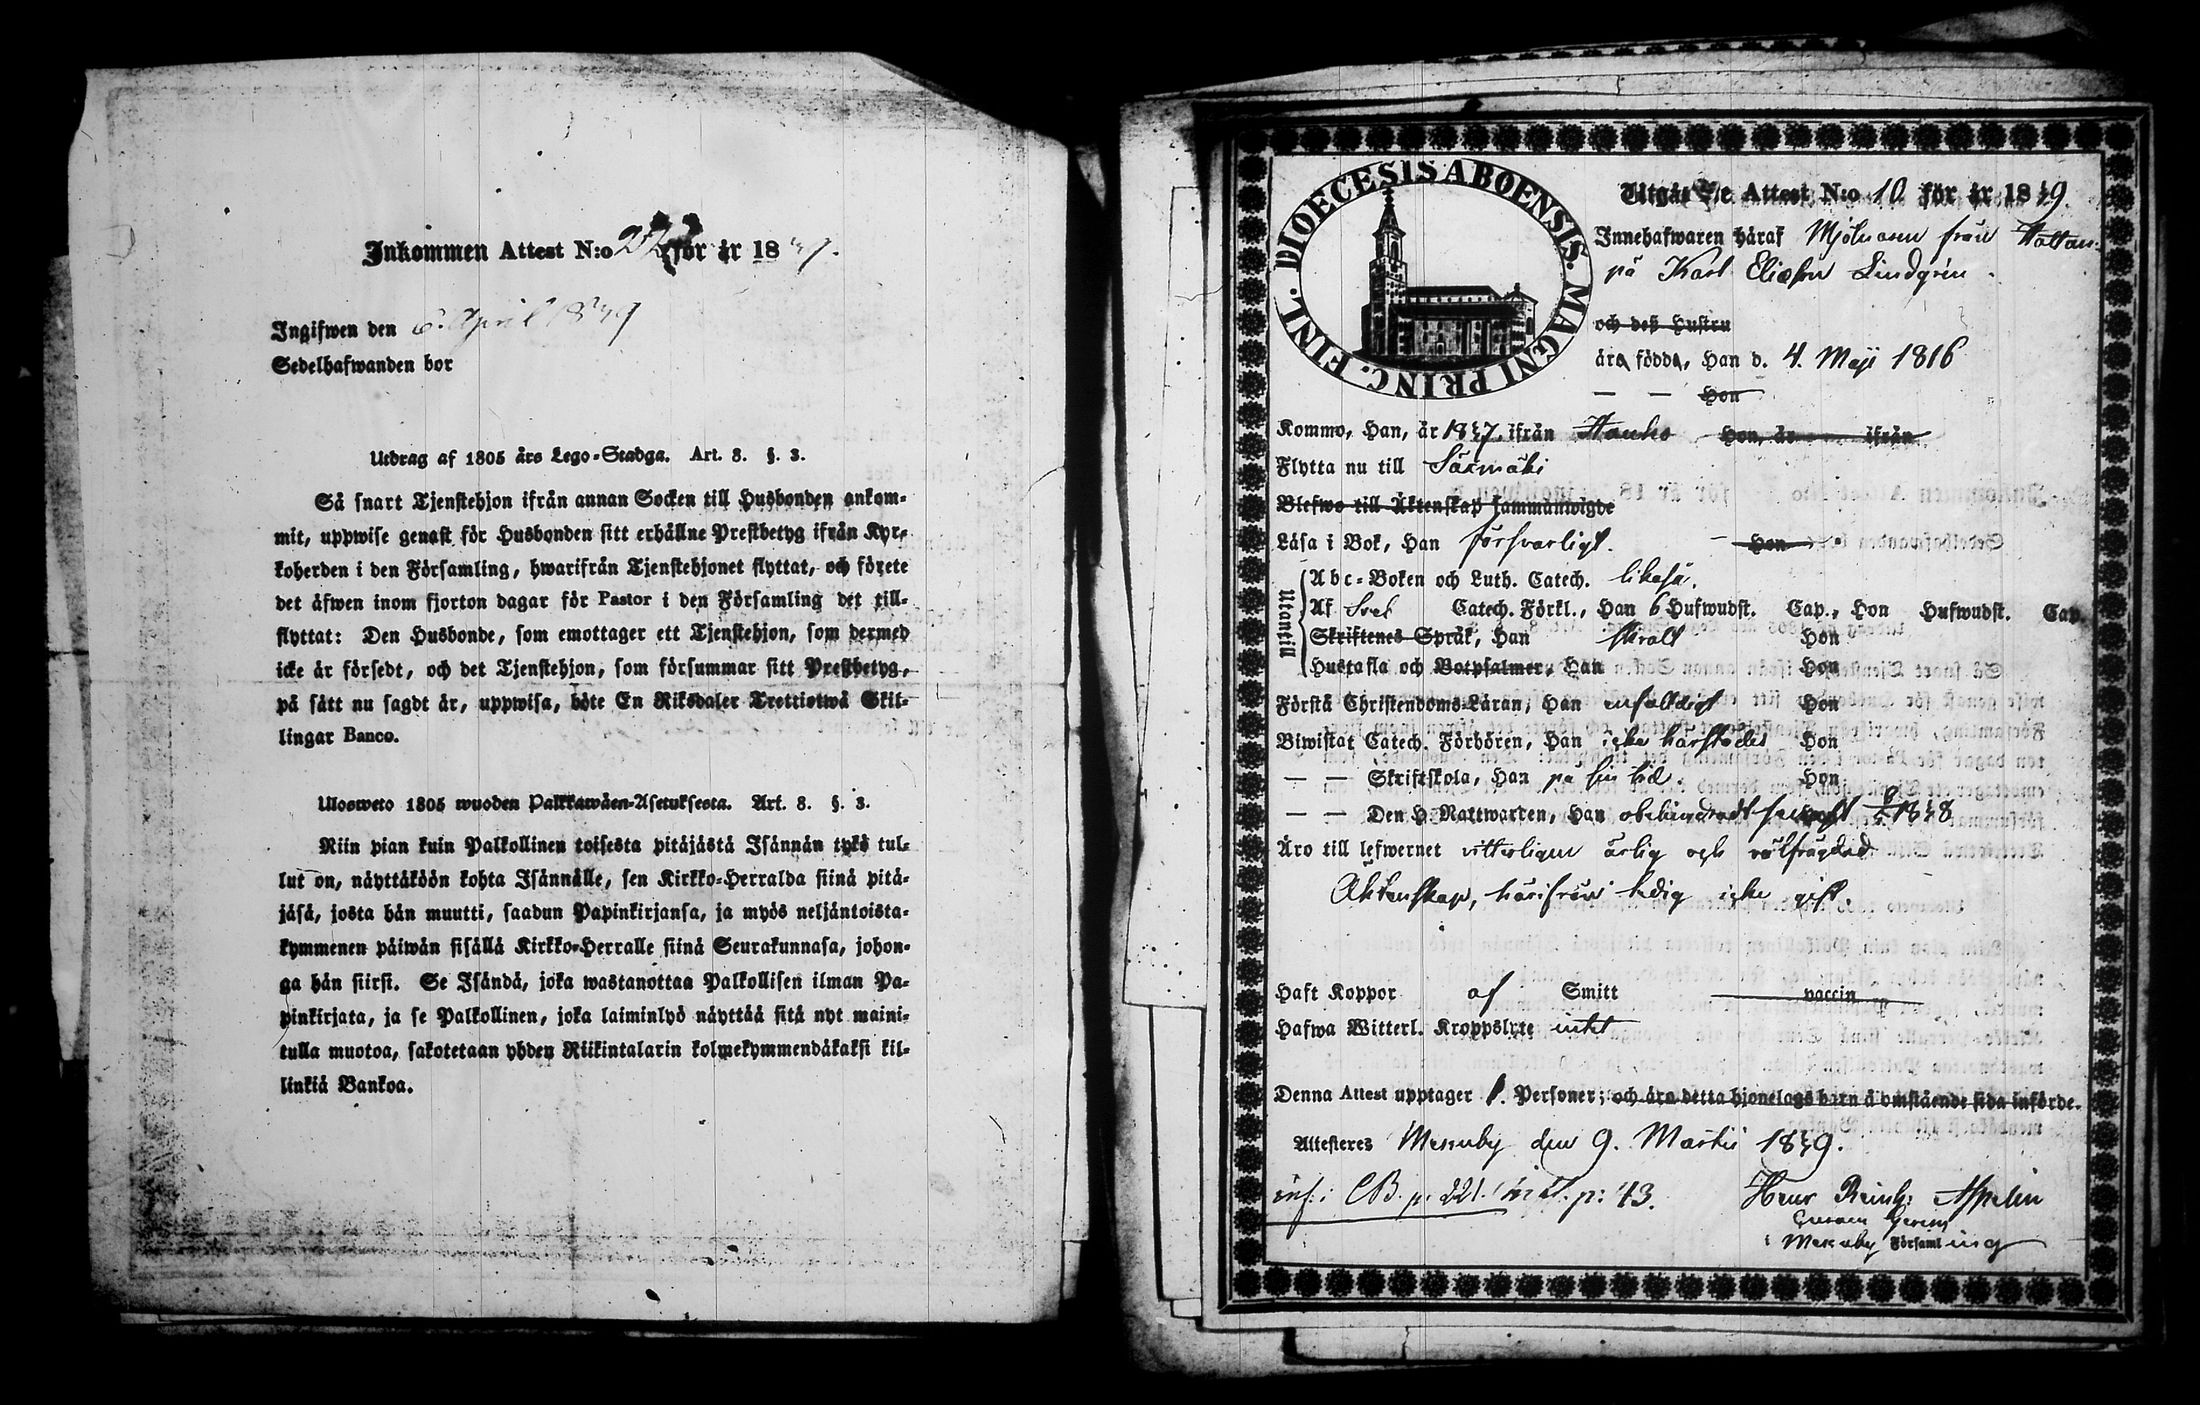 Inkommen Attest N:o 22 för år 1849.
Ingifwen den 6. April 1849
Sedelhafwanden bor
Utdrag af 1805 års Lego-Stadga. Art. 8. §. 3.
Så snart Tjenstehjon ifrån annan Socken till Husbonden ankom-
mit, uppwise genast för Husbonden sitt erhållne Prestbetyg ifrån Kyr-
koherden i den Församling, hwarifrån Tjenstehjonet flyttat, och förete
det äfwen inom fjorton dagar för Pastor i den Församling det till-
flyttat: Den Husbonde, som emottager ett Tjenstehjon, som dermed
icke är försedt, och det Tjenstehjon, som försummar sitt Prestbetyg,
på sätt nu sagdt är, uppwisa, böte En Riksdaler Trettiotwå Skil-
lingar Banco.
Ulosweto 1805 wuoden Palkkawäen-Asetuksesta. Art. 8. §. 3.
Niin pian kuin Palkollinen toisesta pitäjästä Isännän tykö tul-
lut on, näyttäköön kohta Isännälle, sen Kirkko-Herralda siinä pitä-
jäsä, josta hän muutti, saadun Papinkirjansa, ja myös neljäntoista-
kymmenen päiwän sisällä Kirkko-Herralle siinä Seurakunnasa, johon-
ga hän siirsi. Se Isändä, joka wastanottaa Palkollisen ilman Pa-
pinkirjata, ja se Palkollinen, joka laiminlyö näyttää sitä nyt maini-
tulla muotoa, sakotetaan yhden Riikintalarin kolmekymmendäkaksi kil-
linkiä Bankoa.
DIOECESIS ABOENSIS. MAGNI PRINC. FINL.
Utgående Attest N:o 10 för år 1849.
Innehafwaren häraf Mjölnaren från
på Karl Eliasson Lindgrén.
och deß Hustru
äro födde, Han d. 4. Maji 1816
— — Hon
Kommo, Han, år 1847 ifrån Hauho Hon, år ifrån
Flytta nu till Säxmäki
Blefwo till Äktenskap sammanwigde
Läsa i Bok, Han försvarligt. — Hon
Utantill
Abc-Boken och Luth. Catech. likaså.
Af Sveb Catech. Förkl., Han 6 Hufwudst. Cap., Hon Hufwudst. Cap.
Skriftenes Språk, Han Hon
Hustafla och Botpsalmer, Han Hon
Förstå Christendoms-Läran, Han enfaldigt Hon
Biwistat Catech. Förhören, Han icke härstädes Hon
— — Skriftskola, Han på sin tid. Hon
— — Den H. Nattwarden, Han obehindradt senast 1848
Äro till lefwernet vitterligen ärlig och välfrägdad
Äktenskap, härifrån ledig icke gift.
Haft Koppor af Smitt vaccin
Hafwa Witterl. Kroppslyte intet
Denna Attest upptager 1. Personer; och äro detta hjonelags barn å omstående sida införde.
Attesteres Messuby den 9. Martii 1849.
inf. i CB. p. 221. p: 43.
Henr Reinh: Aspelin
i Messuby Församling